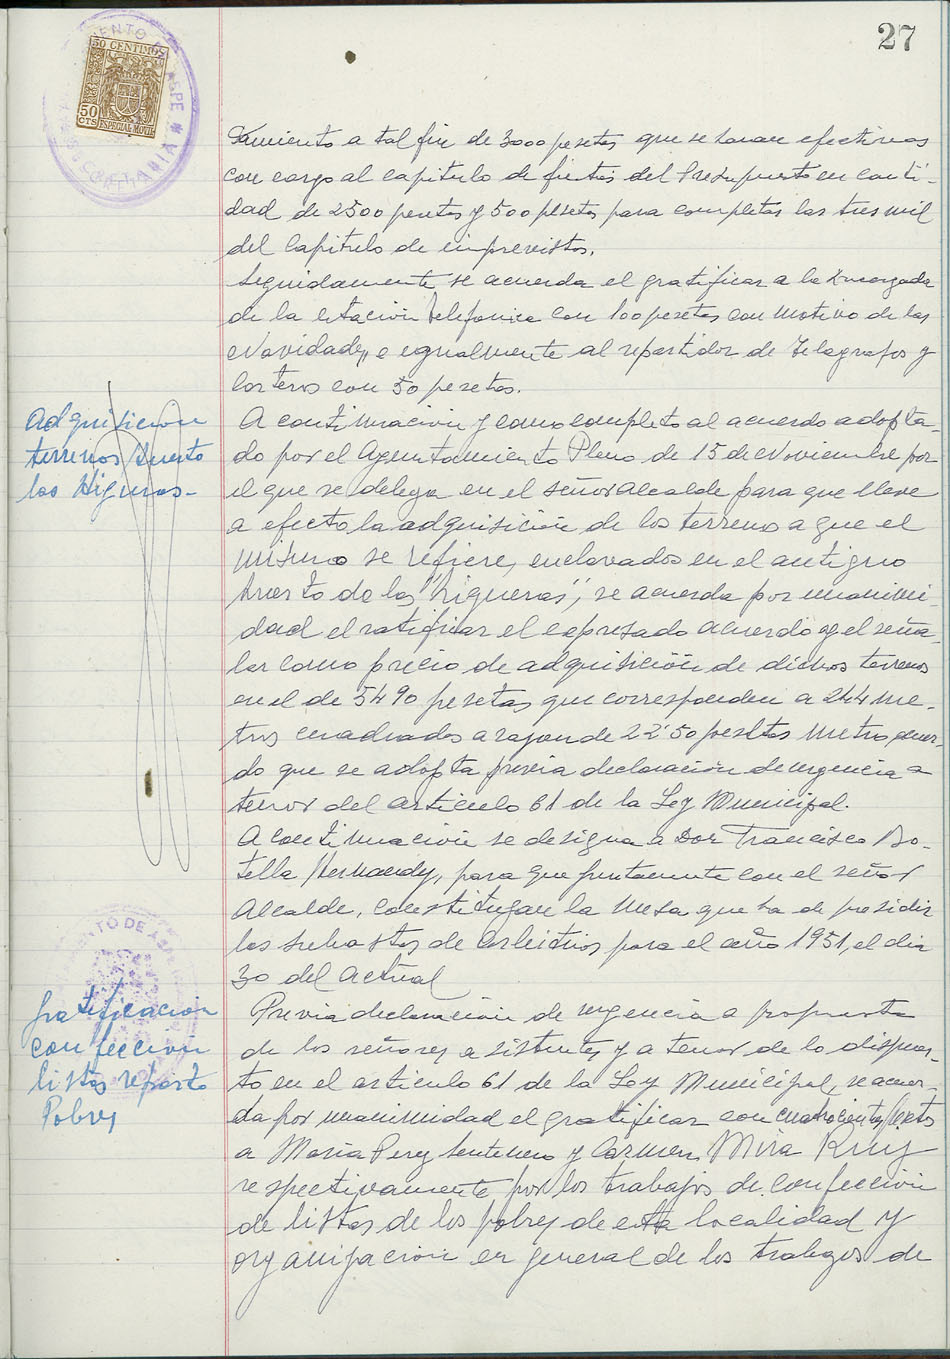 27
50 CENTIMOS
50
CTS
ESPECIAL MOVIL
SECRETARIA
tamiento a tal fin de 3000 pesetas que se haran efectivas
con cargo al capitulo de fiestas del Presupuesto en canti-
dad de 2500 pesetas y 500 pesetas para completar las tres mil
del Capitulo de imprevistos.
Seguidamente se acuerda el gratificar a la Encargada
de la estación telefonica con 100 pesetas con motivo de las
Navidades, e egualmente al repartidor de Telegrafos y
Carteros con 50 pesetas.
Adquisicion
terrenos Huerto
las Higueras-
A continuación y como completo al acuerdo adopta-
do por el Ayuntamiento Pleno de 15 de Noviembre por
el que se delega en el señor Alcalde para que lleve
a efecto la adquisición de los terrenos a que el
mismo se refiere, enclavados en el antiguo
huerto de las "higueras", se acuerda por unanimi-
dad el ratificar el expresado acuerdo y el seña-
lar como precio de adquisición de dichos terrenos
en el de 5490 pesetas que corresponden a 244 me-
tros cuadrados a razon de 22'50 pesetas metro, acuer-
do que se adopta previa declaración de urgencia a
tenor del articulo 61 de la Ley Municipal.
A continuación se designa a Don Francisco Bo-
tella Hernandez, para que juntamente con el señor
Alcalde, constituyan la Mesa que ha de presidir
las subastas de Arbitrios para el año 1951, el dia
30 del actual
AYUNTAMIENTO DE ASPE
Gratificacion
confeccion
listas reparto
Pobres
Previa declaración de urgencia a propuesta
de los señores asistentes y a tenor de lo dispues-
to en el articulo 61 de la Ley Municipal, se acuer-
da por unanimidad el gratificar con cuatrocientas pesetas
a Maria Perez Senteno y Carmen Mira Ruiz
respectivamente por los trabajos de confección
de listas de los pobres de esta localidad y
organización en general de los trabajos de